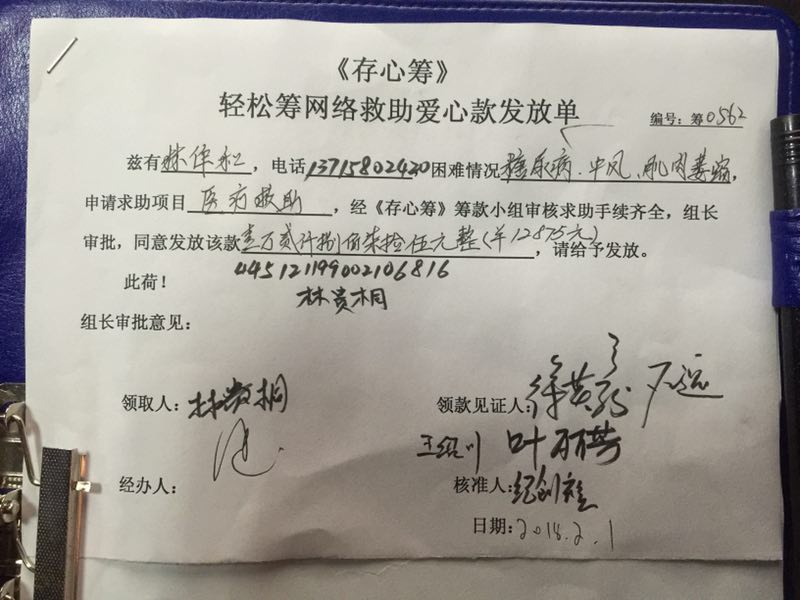 《存心筹》
轻松筹网络救助爱心款发放单
编号：筹0562
兹有林作和，电话13715802420困难情况糖尿病、中风、肌肉萎缩，
申请求助项目医疗救助，经《存心筹》筹款小组审核求助手续齐全，组长
审批，同意发放该款壹万贰仟捌佰柒拾伍元整(￥12875元)，请给予发放。
445121199002106816
此荷！
林贵桐
组长审批意见：
领取人：林贵桐
领款见证人：
叶丽芸
经办人：
核准人：
日期：2018.2.1